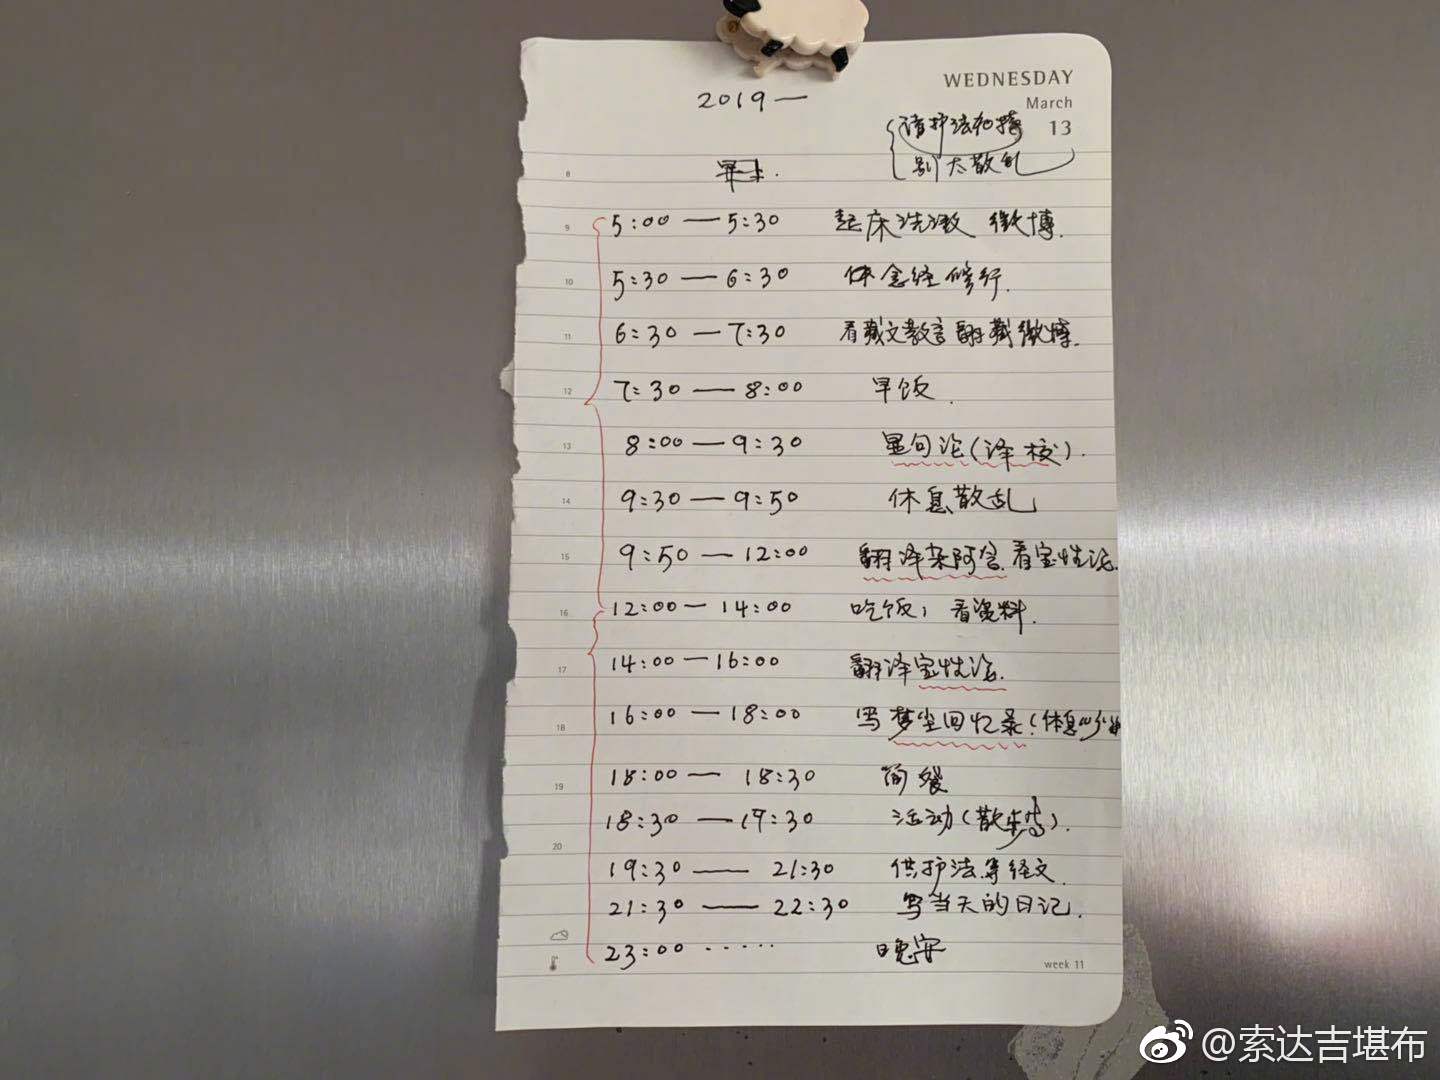 WEDNESDAY
March
13
2019—
请护法加持
别太散乱
8
9 5:00 — 5:30 起床洗漱 微博.
10 5:30 — 6:30 体 念经修行.
11 6:30 — 7:30 看藏文教言翻藏微博.
12 7:30 — 8:00 早饭.
13 8:00 — 9:30 显句论(译校).
14 9:30 — 9:50 休息散乱
15 9:50 — 12:00 翻译杂阿含.看宝性论.
16 12:00 — 14:00 吃饭,看资料.
17 14:00 — 16:00 翻译宝性论.
18 16:00 — 18:00 写梦尘回忆录(休息
19 18:00 — 18:30 简餐
18:30 — 19:30 活动(散步等).
20 19:30 — 21:30 供护法等经文.
21:30 — 22:30 写当天的日记.
23:00 ······ 晚安
week 11
@索达吉堪布